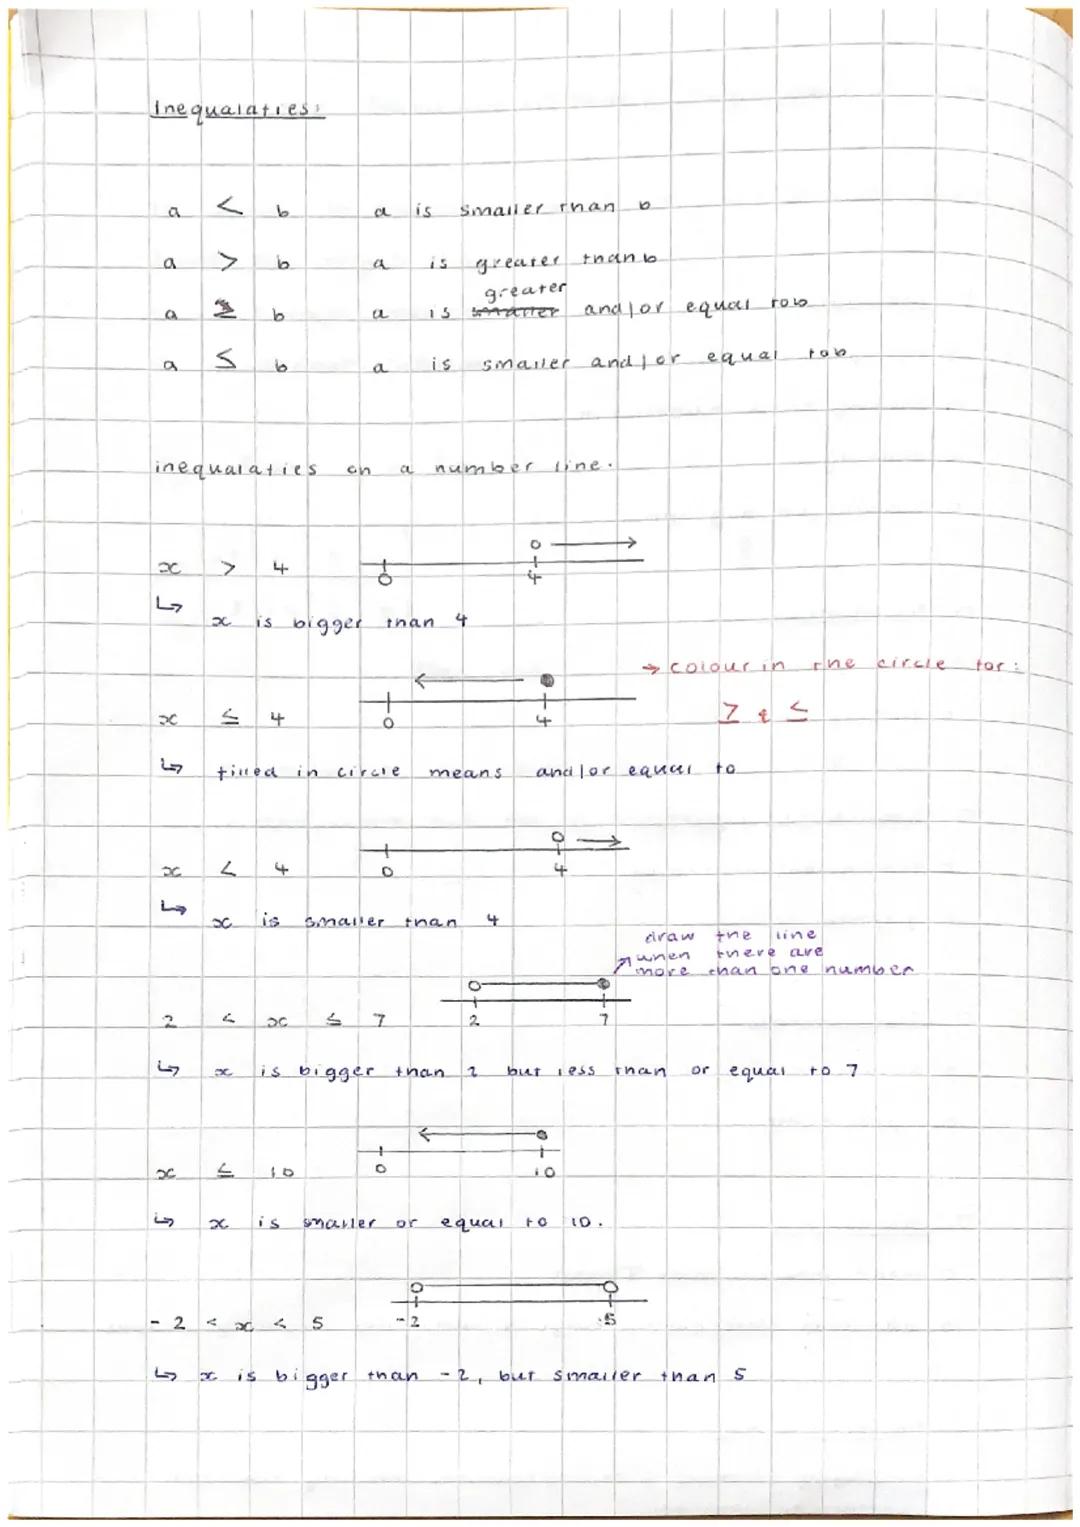 Inequalaties:
a < b a is smaller than b
a > b a is greater than b
greater
a ≥ b a is smaller and/or equal to b
a ≤ b a is smaller and/or equal to b
inequalaties on a number line.
x > 4 0 4
↳ x is bigger than 4
→ colour in the circle for:
≥ & ≤
x ≤ 4 0 4
↳ filled in circle means and/or equal to
x < 4 0 4
↳ x is smaller than 4
draw the line
when there are
more than one number
2 < x ≤ 7 2 7
↳ x is bigger than 2 but less than or equal to 7
x ≤ 10 0 10
↳ x is smaller or equal to 10.
-2 < x < 5 -2 5
↳ x is bigger than -2, but smaller than 5